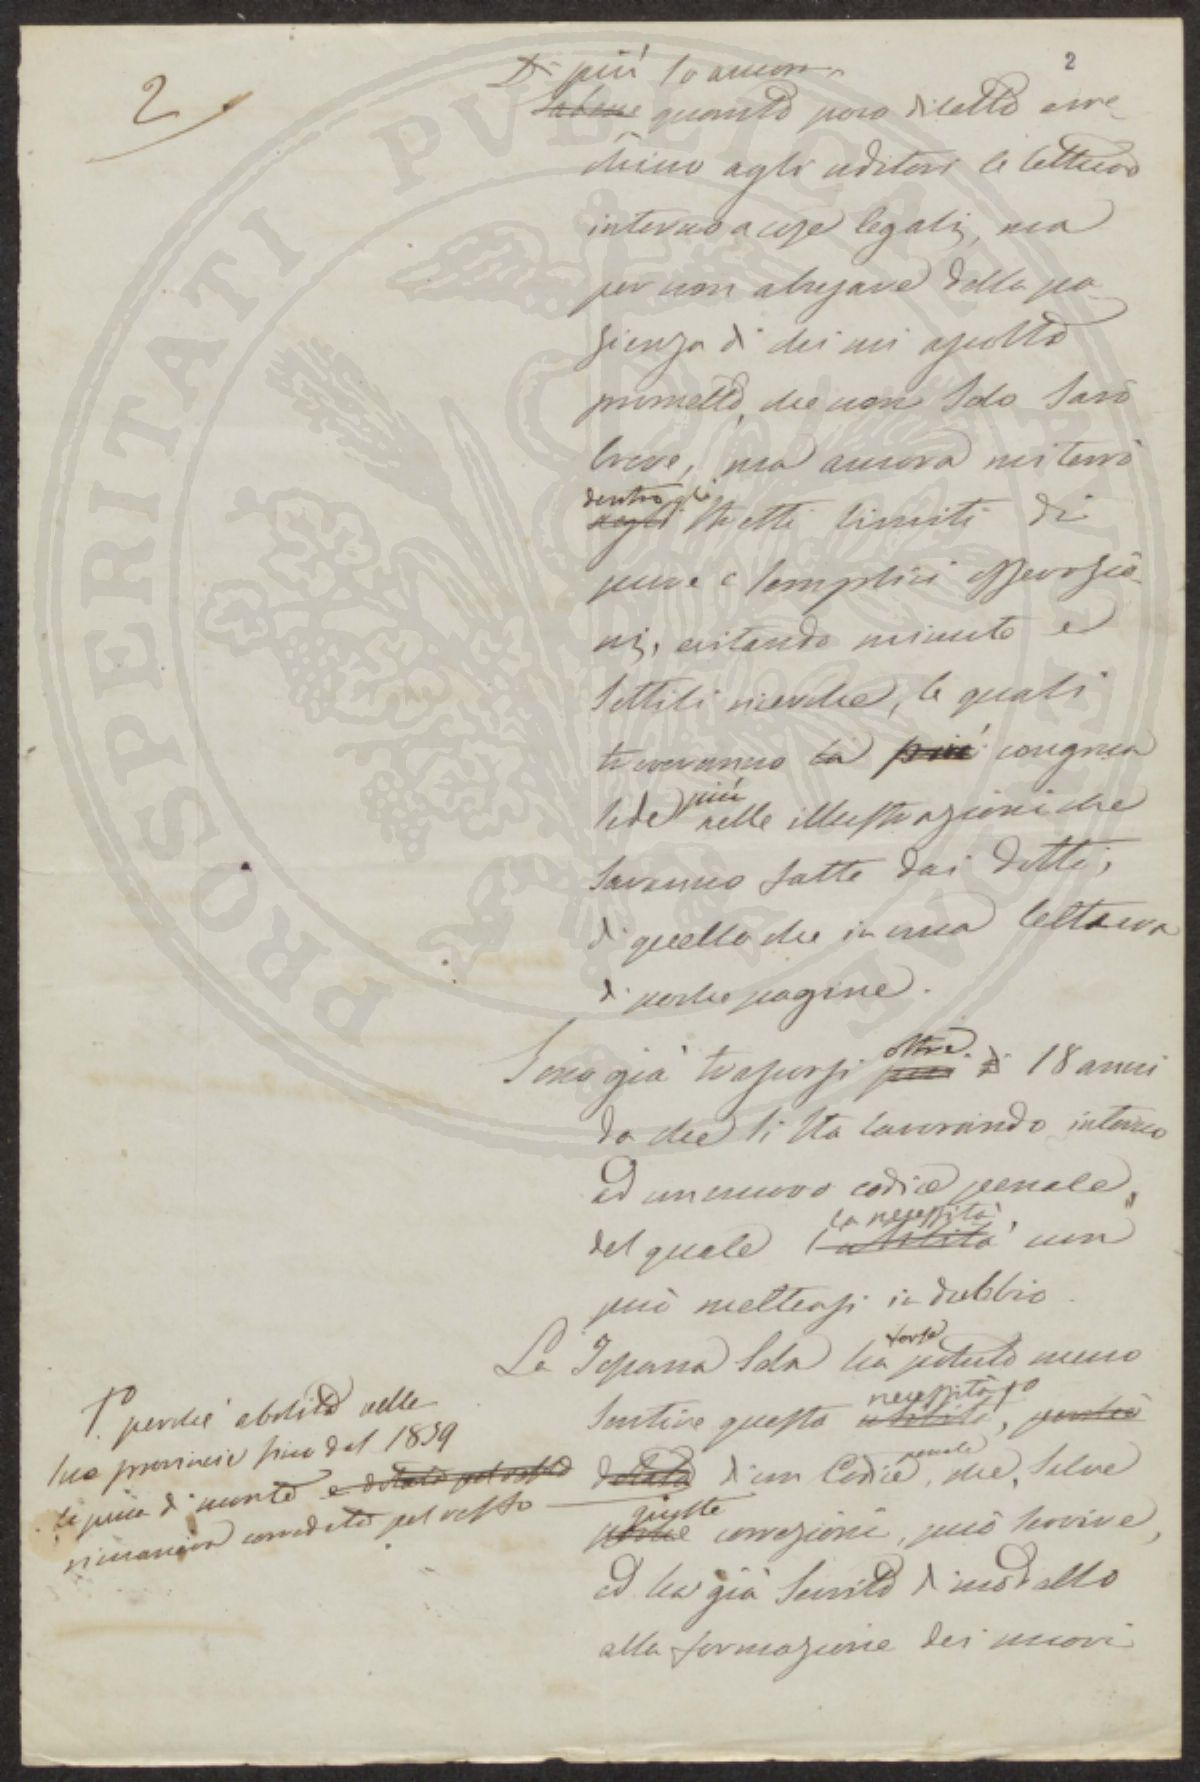 2
2
Di più so ancora
Sebene quanto poco diletto arre-
chino agli uditori le letture
intorno a cose legali, ma
per non abusare della pa-
zienza di chi mi ascolta
prometto, che non solo sarò
breve, ma ancora mi terrò
dentro gli
negli stretti limiti di
pure e semplici osservazio-
ni, evitando minute e
sottili ricerche, le quali
troveranno la più congrua
sede più nelle illustrazioni che
saranno fatte dai dotti,
di quello che in una lettura
di poche pagine.
Sono già trascorsi oltre più di 18 anni
da che si sta lavorando intorno
ad un nuovo codice penale,
la necessità
del quale l'utilità non
può mettersi in dubbio.
La Toscana sola ha forse potuto meno
necessità
sentire questa utilità, perchè
dotata di un Codice penale, che, salve
giuste
poche correzioni, può servire,
ed ha già servito di modello
alla formazione dei nuovi
perchè abolita nelle
sue provincie fino dal 1859
la pena di morte e dotata pel resto
rimaneva corredata pel resto
PROSPERITATI PVBLICAE AVGENDAE